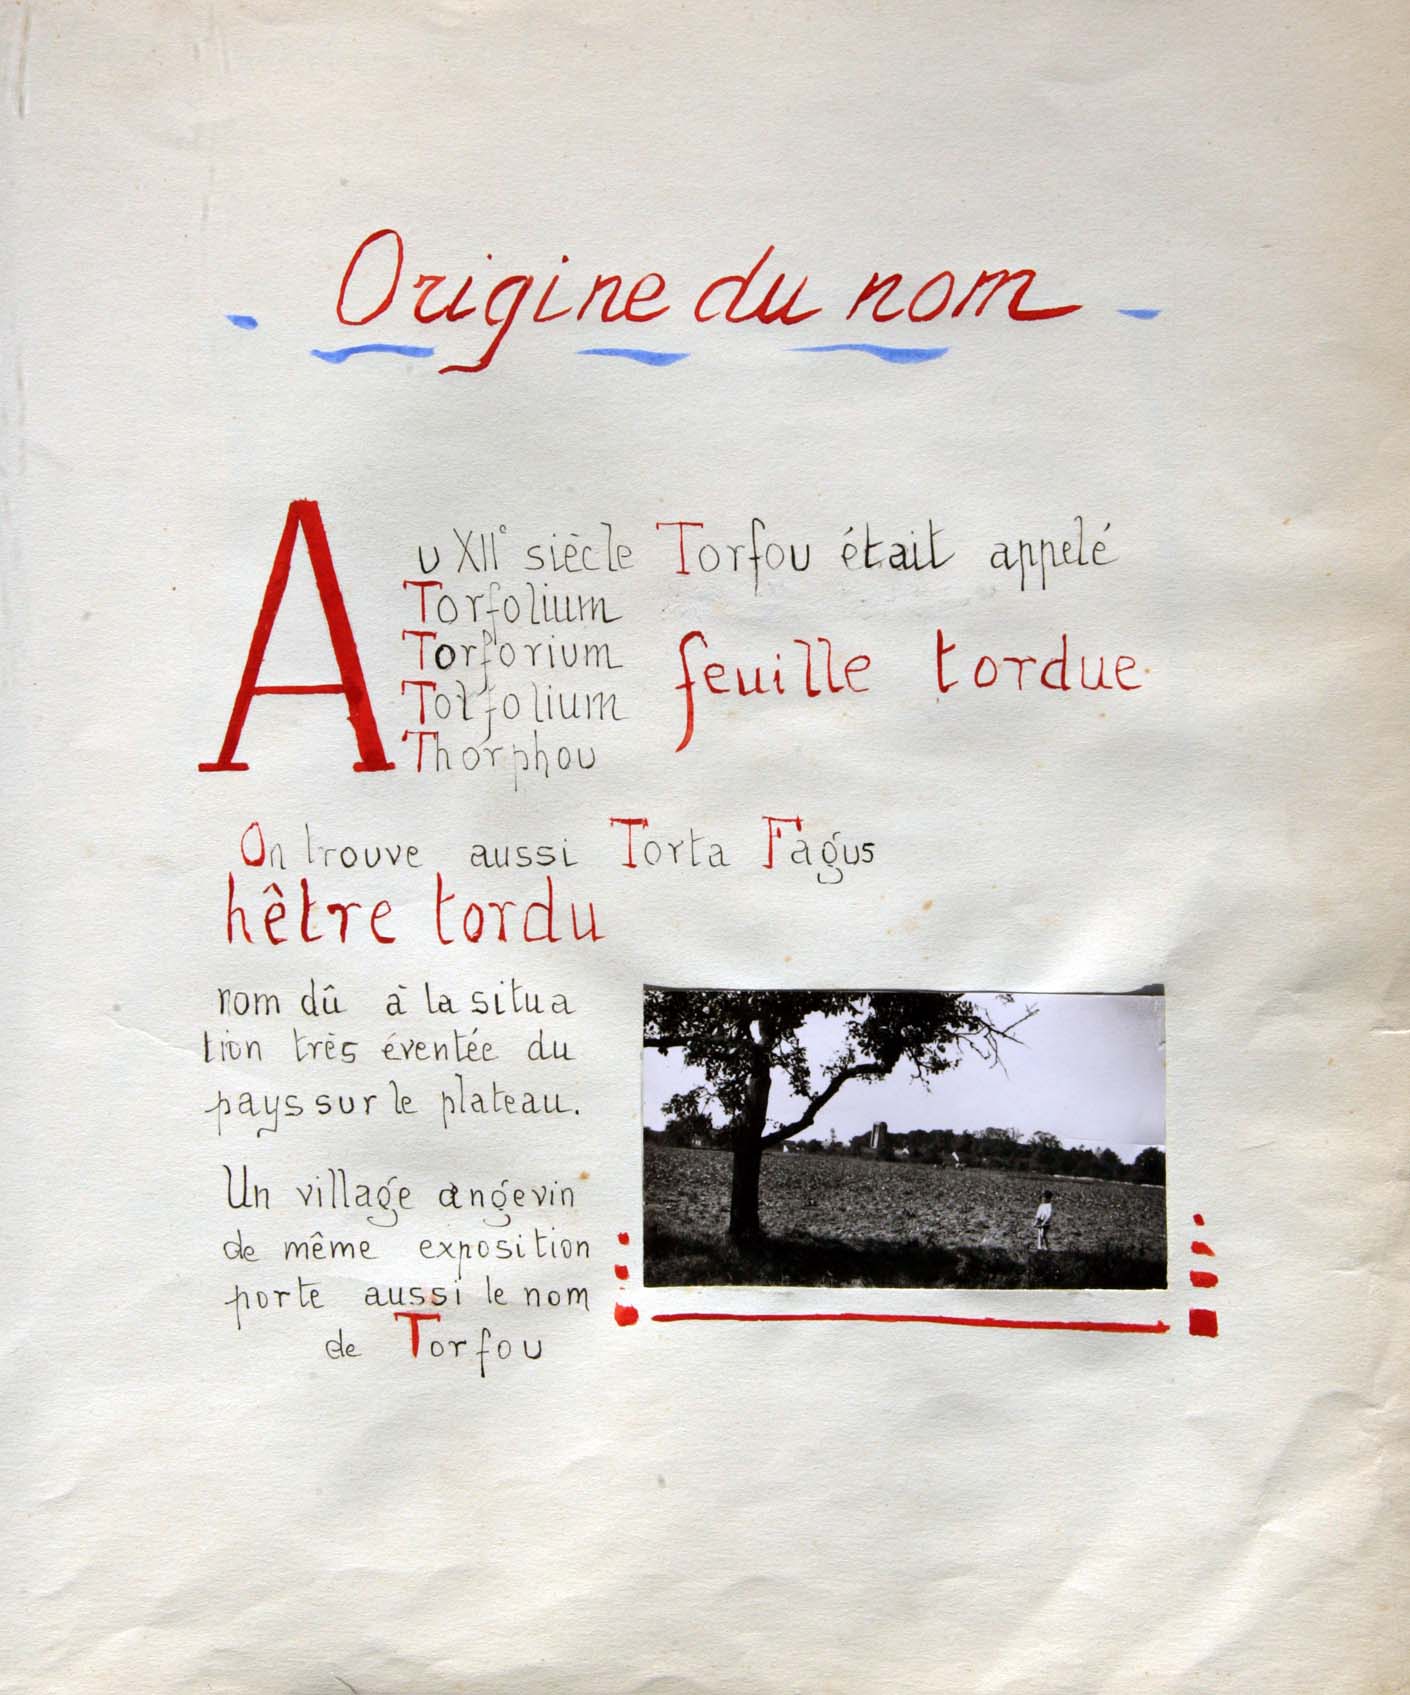 - Origine du nom -
Au XIIe siècle Torfou était appelé
Torfolium
Torforium
feuille tordue
Tolfolium
Thorphou
On trouve aussi Torta Fagus
hêtre tordu
nom dû à la situa
tion très éventée du
pays sur le plateau.
Un village angevin
de même exposition
porte aussi le nom
de Torfou